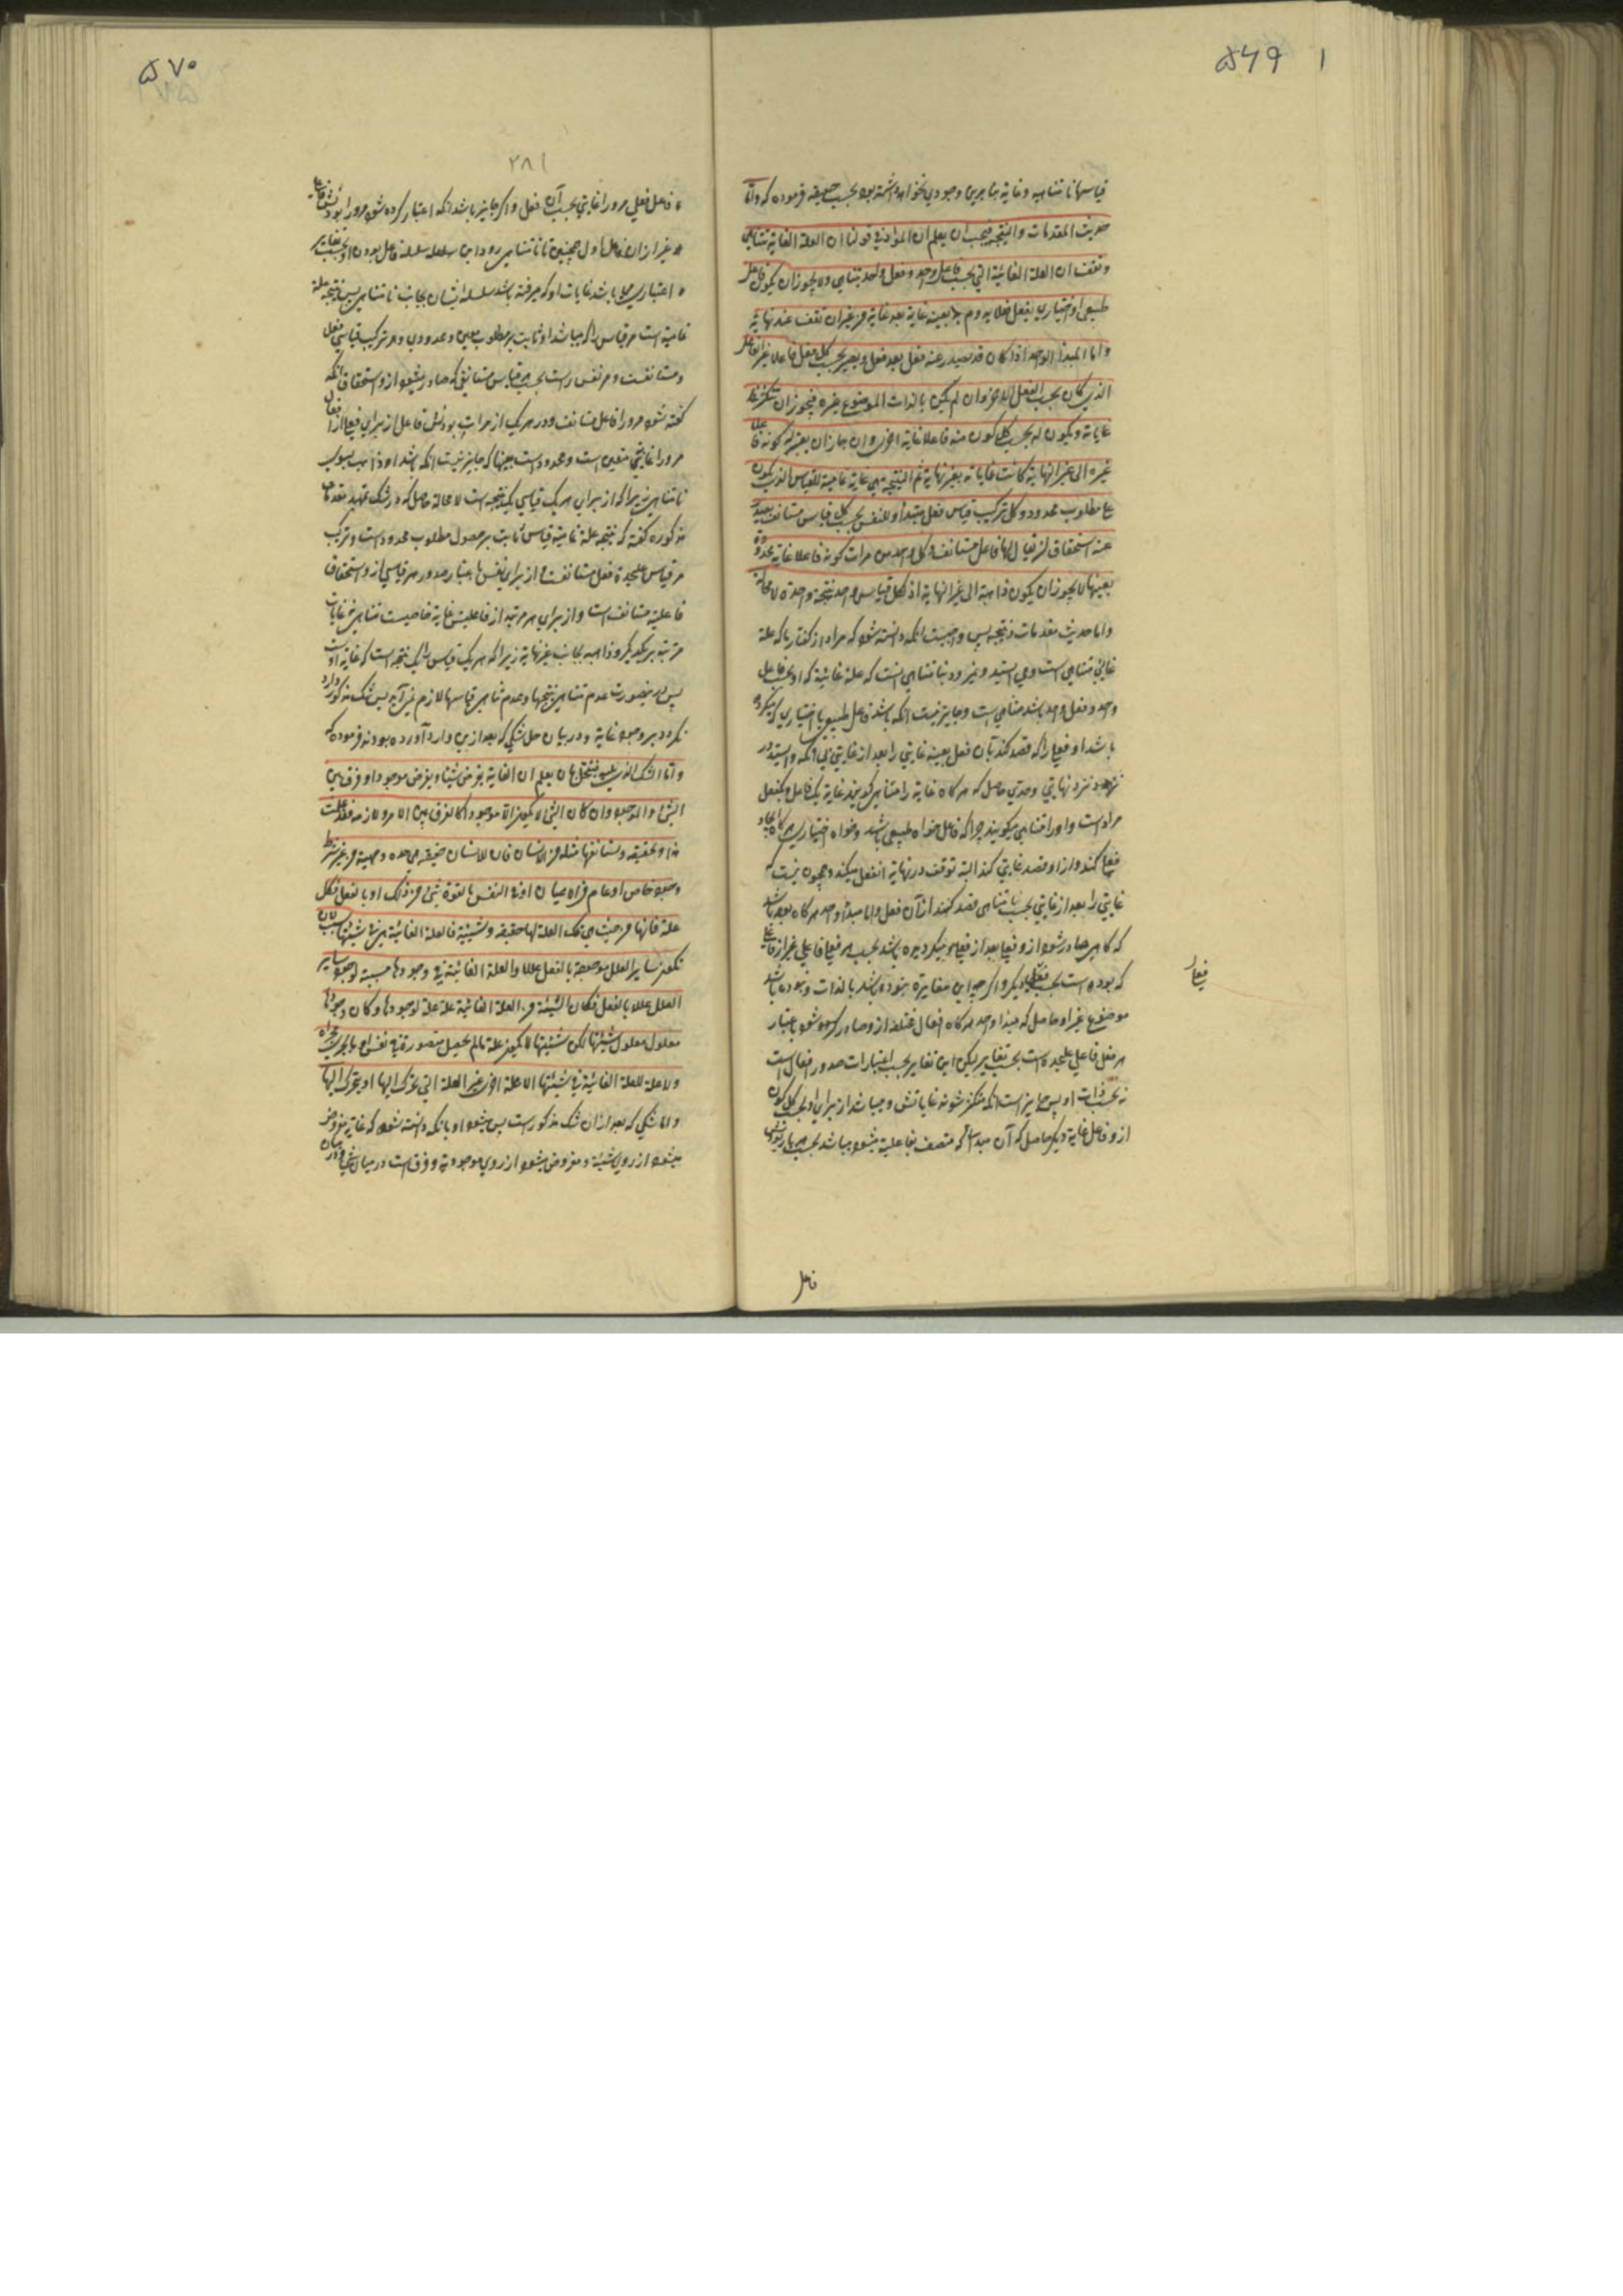 ۵۶۹
قیاسها نامتناهیه و غایة بنابرین وجودی نخواهد داشت بود بحسب حقیقه فرموده که واما
حدیث المقدمات والنتیجة فیجب ان یعلم ان المراد فی قولنا ان العلة الغایة تتناهی
وتقف ان العلة الغائیة التی بحسب فاعل واحد وفعل واحد تتناهی ولا یجوز ان یکون فاعل
طبیعی او اختیاری یفعل فعلا یروم به بعینه غایة بعد غایة من غیر ان تقف عند نهایة
واما المبدأ الواحد اذا کان قد یصدر عنه فعل بعد فعل ویصیر بحسب کل فعل فاعلا غیر الفاعل
الذی کان بحسب الفعل الاخر وان لم یکن بالذات الموضوع غیره فیجوز ان تتکثر
غایاته ویکون له بحسب کل کون منه فاعلا غایة اخری وان جاز ان یعتبر له کونه فاعلا
غیره الی غیر النهایة کانت غایاته بغیر نهایة ثم النتیجة هی غایة تمامیة للقیاس الذی یکون
علی مطلوب محدود وکل ترکیب قیاس فعل مبتدأ وللنفس بحسب کل قیاس مستأنف یصدر
عنه استحقاق لان یقال لها فاعل مستأنف وکل واحد من مرات کونه فاعلا غایة محدودة
بعینها لا یجوز ان یکون ذاهبة الی غیر النهایة اذ لکل قیاس واحد نتیجة واحدة لا محالة
واما حدیث مقدمات ونتیجه پس واجبست انکه دانسته شود که مراد از گفتار ما که علة
غایی متناهی است ومی ایستد ونمیرود بنامتناهی انست که علة غائیة که او بحسب فاعل
واحد وفعل واحد باشد متناهی است وجایز نیست انکه باشد فاعل طبیعی یا اختیاری که میکرده
باشد او فعلی را که قصد کند بآن فعل بعینه غایتی را بعد از غایتی بی انکه وایستد در
نزد نهایتی وحدی حاصل که هرگاه غایة را متناهی گویند غایة یک فاعل ویکفعل
مراد است واورا متناهی میگویند چرا که فاعل خواه طبیعی باشد وخواه اختیاری هرگاه ایجاد
فعلی کند وازاو قصد غایتی کند البته توقف در نهایة انفعل میکند وهمچون نیست که
غایتی را بعد از غایتی بحسب نامتناهی قصد کند از آن فعل واما مبدأ واحد هرگاه بوده باشد
که گاهی صادر شود ازو فعلی بعد از فعلی ومیگردیده باشد بحسب هر فعلی فاعلی غیر از فاعلی
که بوده است بحسب فعل دیگر واگرچه این مغایرة نبوده باشد بالذات ونبوده باشد
موضوع غیر او حاصل که مبدا واحد هرگاه افعال مختلفه ازو صادر شود باعتبار
هر فعل فاعلی علیحده است بحسب تغایر لیکن این تغایر بحسب اعتبارات صدور افعال است
نه بحسب ذات او پس جایز است انکه متکثر شوند غایاتش ومیباشد از برای او بحسب کل کون
ازو فاعل غایة دیگر حاصل که آن مبدأ که متصف بفاعلیة میشود میباشد بحسب هر بار بودنش
فعل
فاعل
۵۷۰
۲۸۱
فاعل فعلی مر ورا غایتی بحسب آن فعل واگر جایز باشد انکه اعتبار کرده شود مر ورا بودنش فاعلی
غیر ازان فاعل اول همچنین تا نامتناهی رود این سلسله سلسله فاعل بودن او بحسب تغایر
اعتباری میباشد غایات او که میرفته باشد سلسله ایشان بجانب نامتناهی پس نتیجه علة
تمامیة است مر قیاس را که میباشد او ثابت بر مطلوب معین ومحدودی وهر ترکیب قیاسی فعل
ومستانفست ومر نفس راست بحسب هر قیاس مستانفی که صادر میشود ازو استحقاق انکه
گفته شود مر ورا فاعل مستانف ودر هر یک از مرات بودنش فاعل از برای فعلی از افعال
مر ورا غایتی متعین است ومحدود است بعینها که جایز نیست انکه باشد او ذاهب بسوی
نامتناهی زیرا که از برای هر یک قیاسی یک نتیجه است لا محالة حاصل که در شک تمهید مقدمات
مذکوره گفته که نتیجه علة تمامیة قیاس ثابت بر حصول مطلوب محدود است وترکیب
هر قیاس علیحده فعل مستانفست واز برای نفس باعتبار صدور هر قیاسی ازو استحقاق
فاعلیة مستانف است واز برای هر مرتبه از فاعلیتش غایة خاصیست متناهی نه غایات
مرتبه بر یکدیگر وذاهبه بجانب غیر نهایة زیرا که هر یک قیاس را یک نتیجه است که غایة اوست
پس درینصورت عدم تناهی نتیجها وعدم تناهی قیاسها لازم نمی آید پس شک مذکور وارد
نگردد بر وجود غایة ودر بیان حل شکی که بعد ازین وارد آورده بودند فرموده که
واما الشک الذی یلیه فینحل بان یعلم ان الغایة یفرض شیئا ویفرض موجودا وفرق بین
الشئ والموجود وان کان الشئ لا یکون الا موجودا کالفرق بین الامر ولازمه وقد علمت
هذا وتحققته وتستانفه مثله من الانسان فان للانسان حقیقه هی حده وماهیته من غیر شرط
وجود خاص او عام فی الاعیان او فی النفس بالقوة شئ من ذلک او بالفعل فکل
علة فانها من حیث هی تلک العلة لها حقیقه وشیئیة فالعلة الغائیة هی فی شیئیتها سبب لان
تکون سایر العلل موجودة بالفعل عللا والعلة الغائیة فی وجودها مسببة لوجود سایر
العلل عللا بالفعل فکان الشیئیة من العلة الغائیة علة علة لوجودها وکان وجودها
معلول معلول شیئیتها لکن شیئیتها لا یکون علة مالم یحصل متصورة فی نفس او ما یجری مجراه
ولا علة للعلة الغائیة فی شیئیتها الا علة اخری غیر العلة التی تحرک الیها او یتحرک الیها
واما شکی که بعد ازان شک مذکور است پس میشود او بانکه دانسته شود که غایة مفروض
میشود از روی شیئیة ومفروض میشود از روی موجودیة وفرق است در میان شئ ودر میان